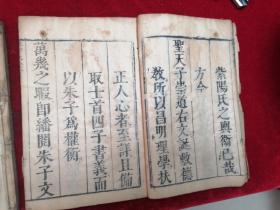 紫陽氏之輿衛已哉
方今
聖天子崇道右文誕敷德
教所以昌明聖學扶
正人心者至詳且備
取士首四子書義而
以朱子為權衡
萬幾之暇即繙閱朱子文